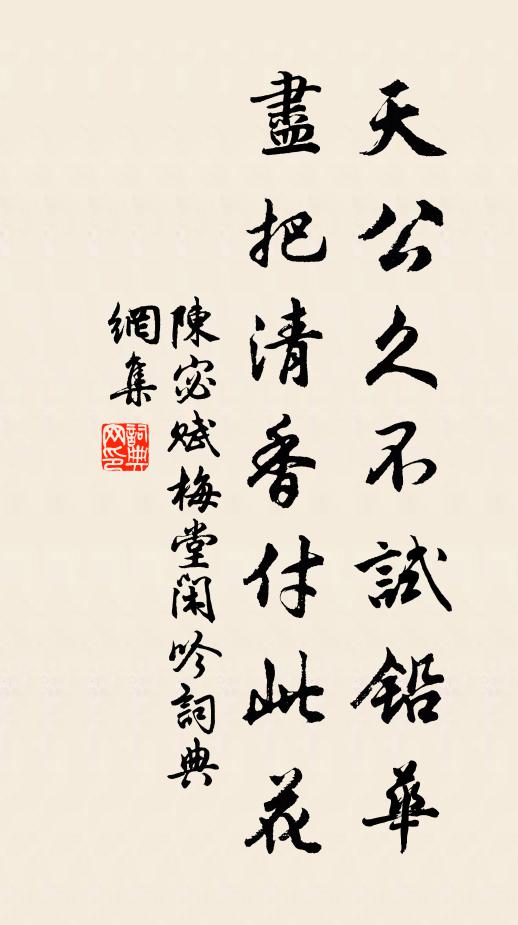 天公久不試鉛華
盡把清香付此花
陳宓賦梅堂閑吟詞典
網集
詞典
网印